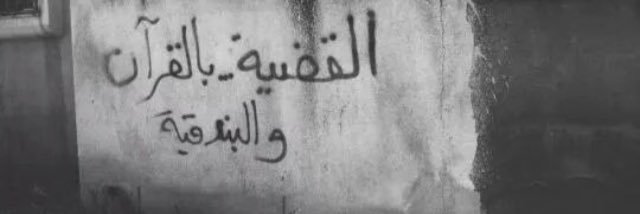 القضية - بالقرآن
والبندقية